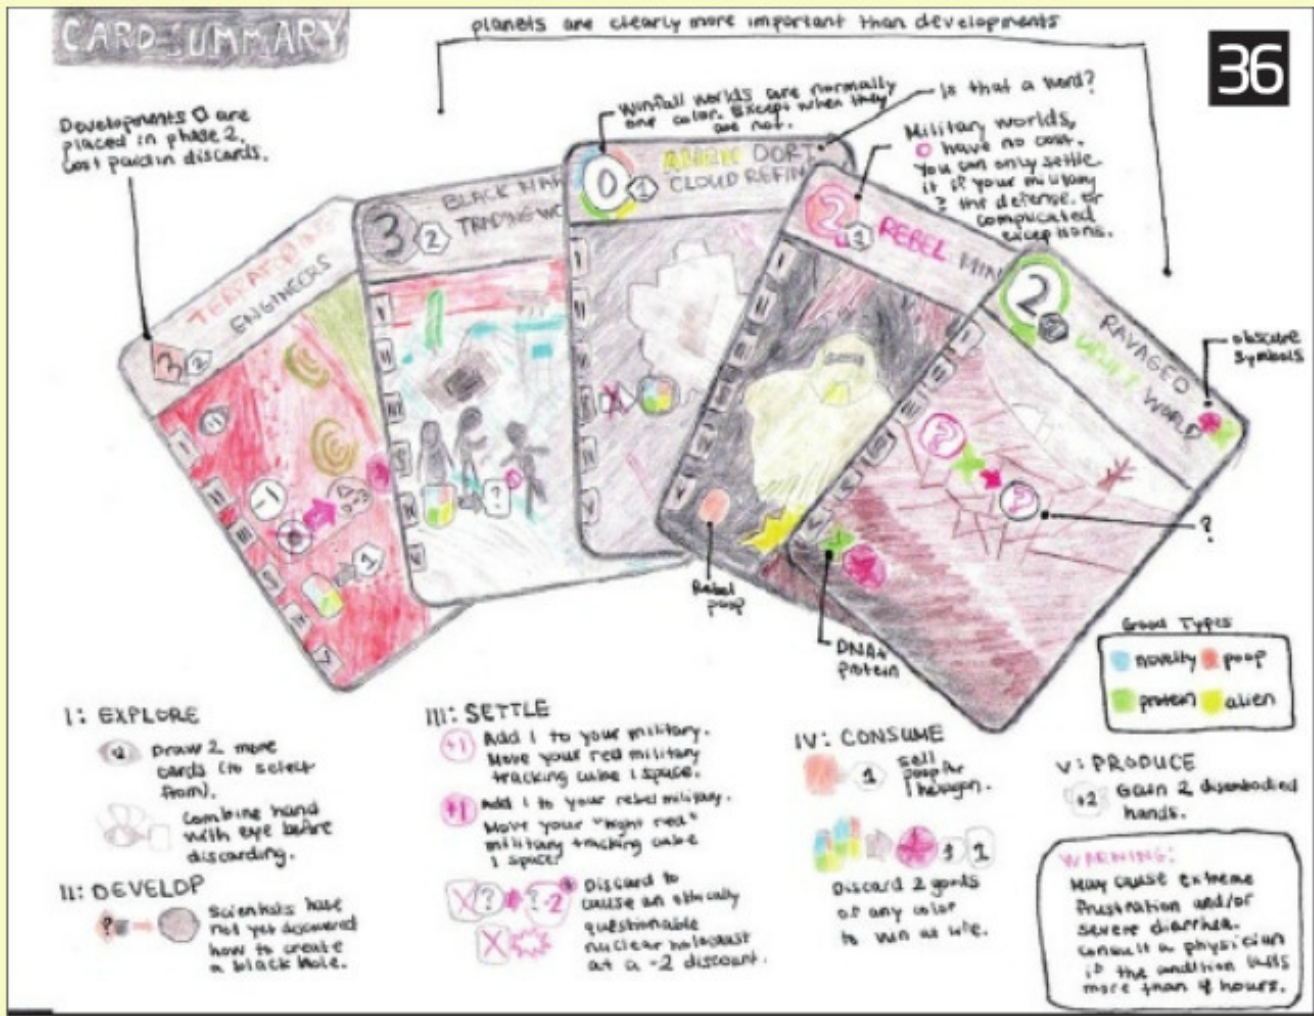 CARD SUMMARY
planets are clearly more important than developments
36
Developments ◊ are
placed in phase 2,
cost paid in discards.
Windfall worlds are normally
one color. Except when they
are not.
Is that a word?
Military worlds,
O have no cost.
You can only settle
it if your military
≥ the defense. or
complicated
exceptions.
obscure
symbols
ENGINEERS
3 2
I
II
III
IV
V
-1
1
BLACK MAR
TRADING WO
3 2
?
ALIEN OORT
CLOUD REFIN
0 1
REBEL MIN
2
RAVAGED
UPLIFT WORLD
2
?
?
?
Rebel
poop
DNA+
protein
Good Types
novelty poop
protein alien
I: EXPLORE
+2 Draw 2 more
cards (to select
from).
Combine hand
with eye before
discarding.
II: DEVELOP
Scientists have
not yet discovered
how to create
a black hole.
III: SETTLE
+1 Add 1 to your military.
Move your red military
tracking cube 1 space.
+1 Add 1 to your rebel military.
Move your "night red"
military tracking cube
1 space
X ? ? -2
X
Discard to
cause an ethically
questionable
nuclear holocaust
at a -2 discount.
IV: CONSUME
1 Sell
poop for
1 hexagon.
1 1
Discard 2 goods
of any color
to win at life.
V: PRODUCE
+2 Gain 2 disembodied
hands.
WARNING:
May cause extreme
frustration and/or
severe diarrhea.
Consult a physician
if the condition lasts
more than 4 hours.